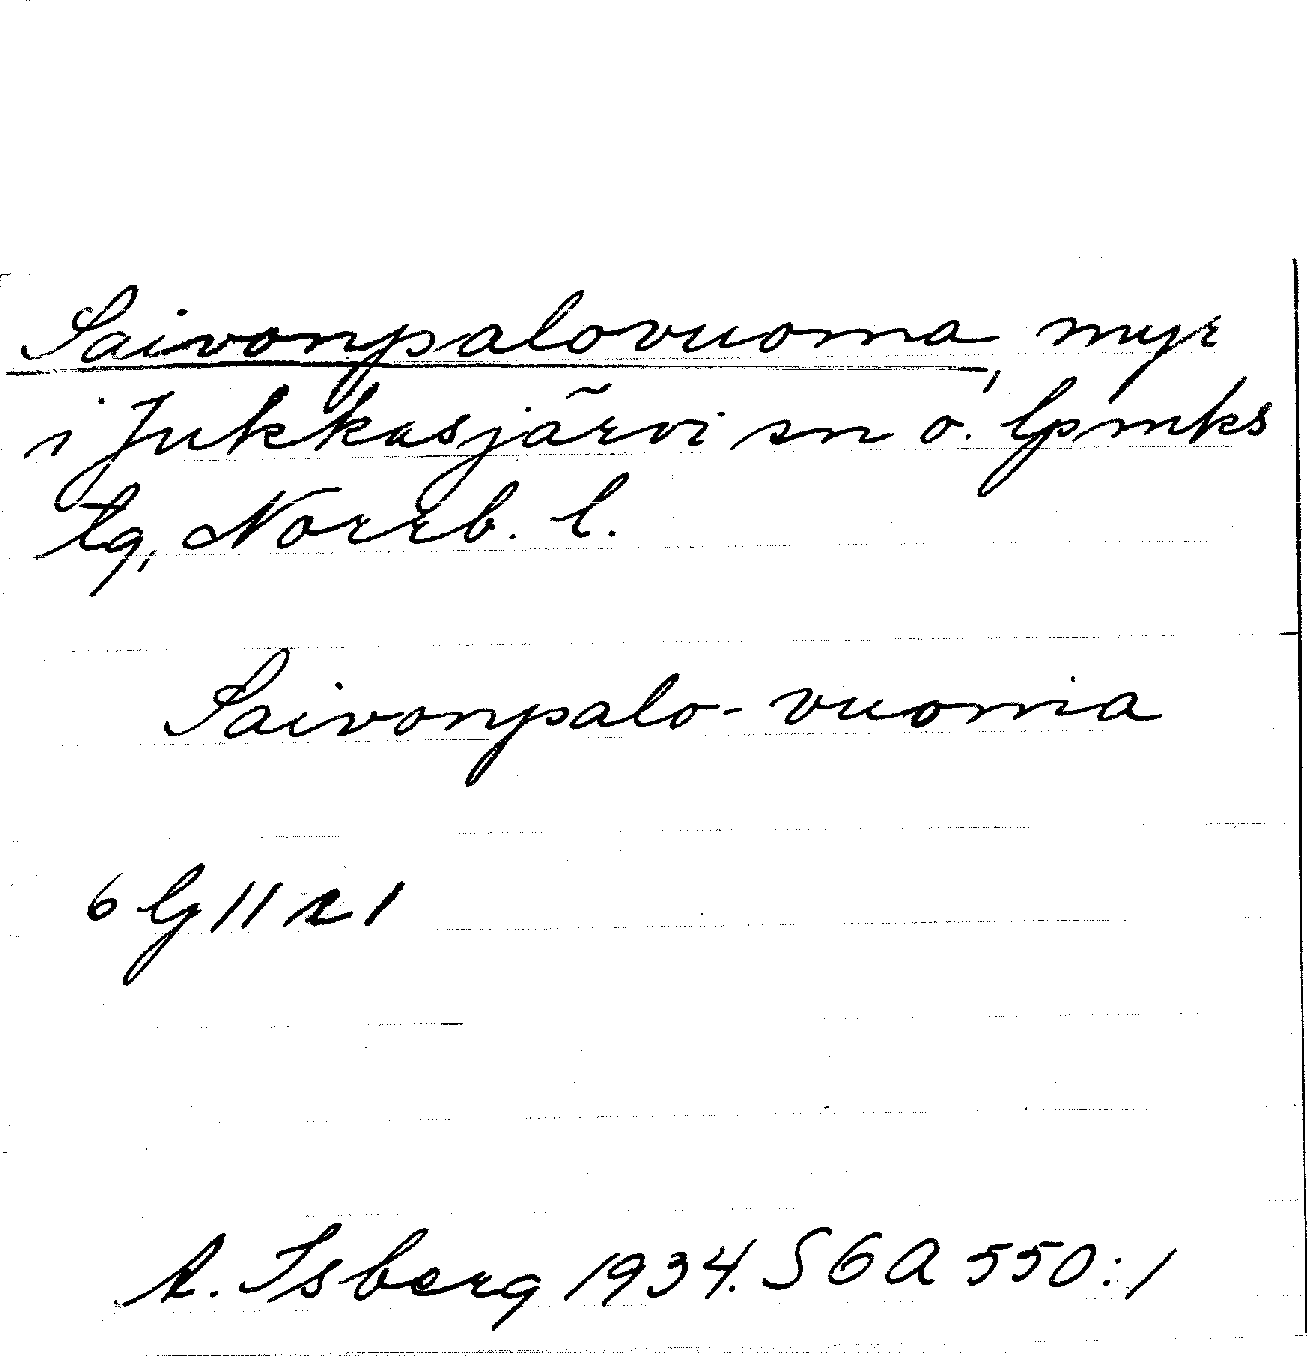 Saivonpalovuoma, myr
i Jukkasjärvi sn o. lpmks
tg, Norrb. l.
Saivonpalo-vuoma
A. Isberg 1934. SGA 550:1